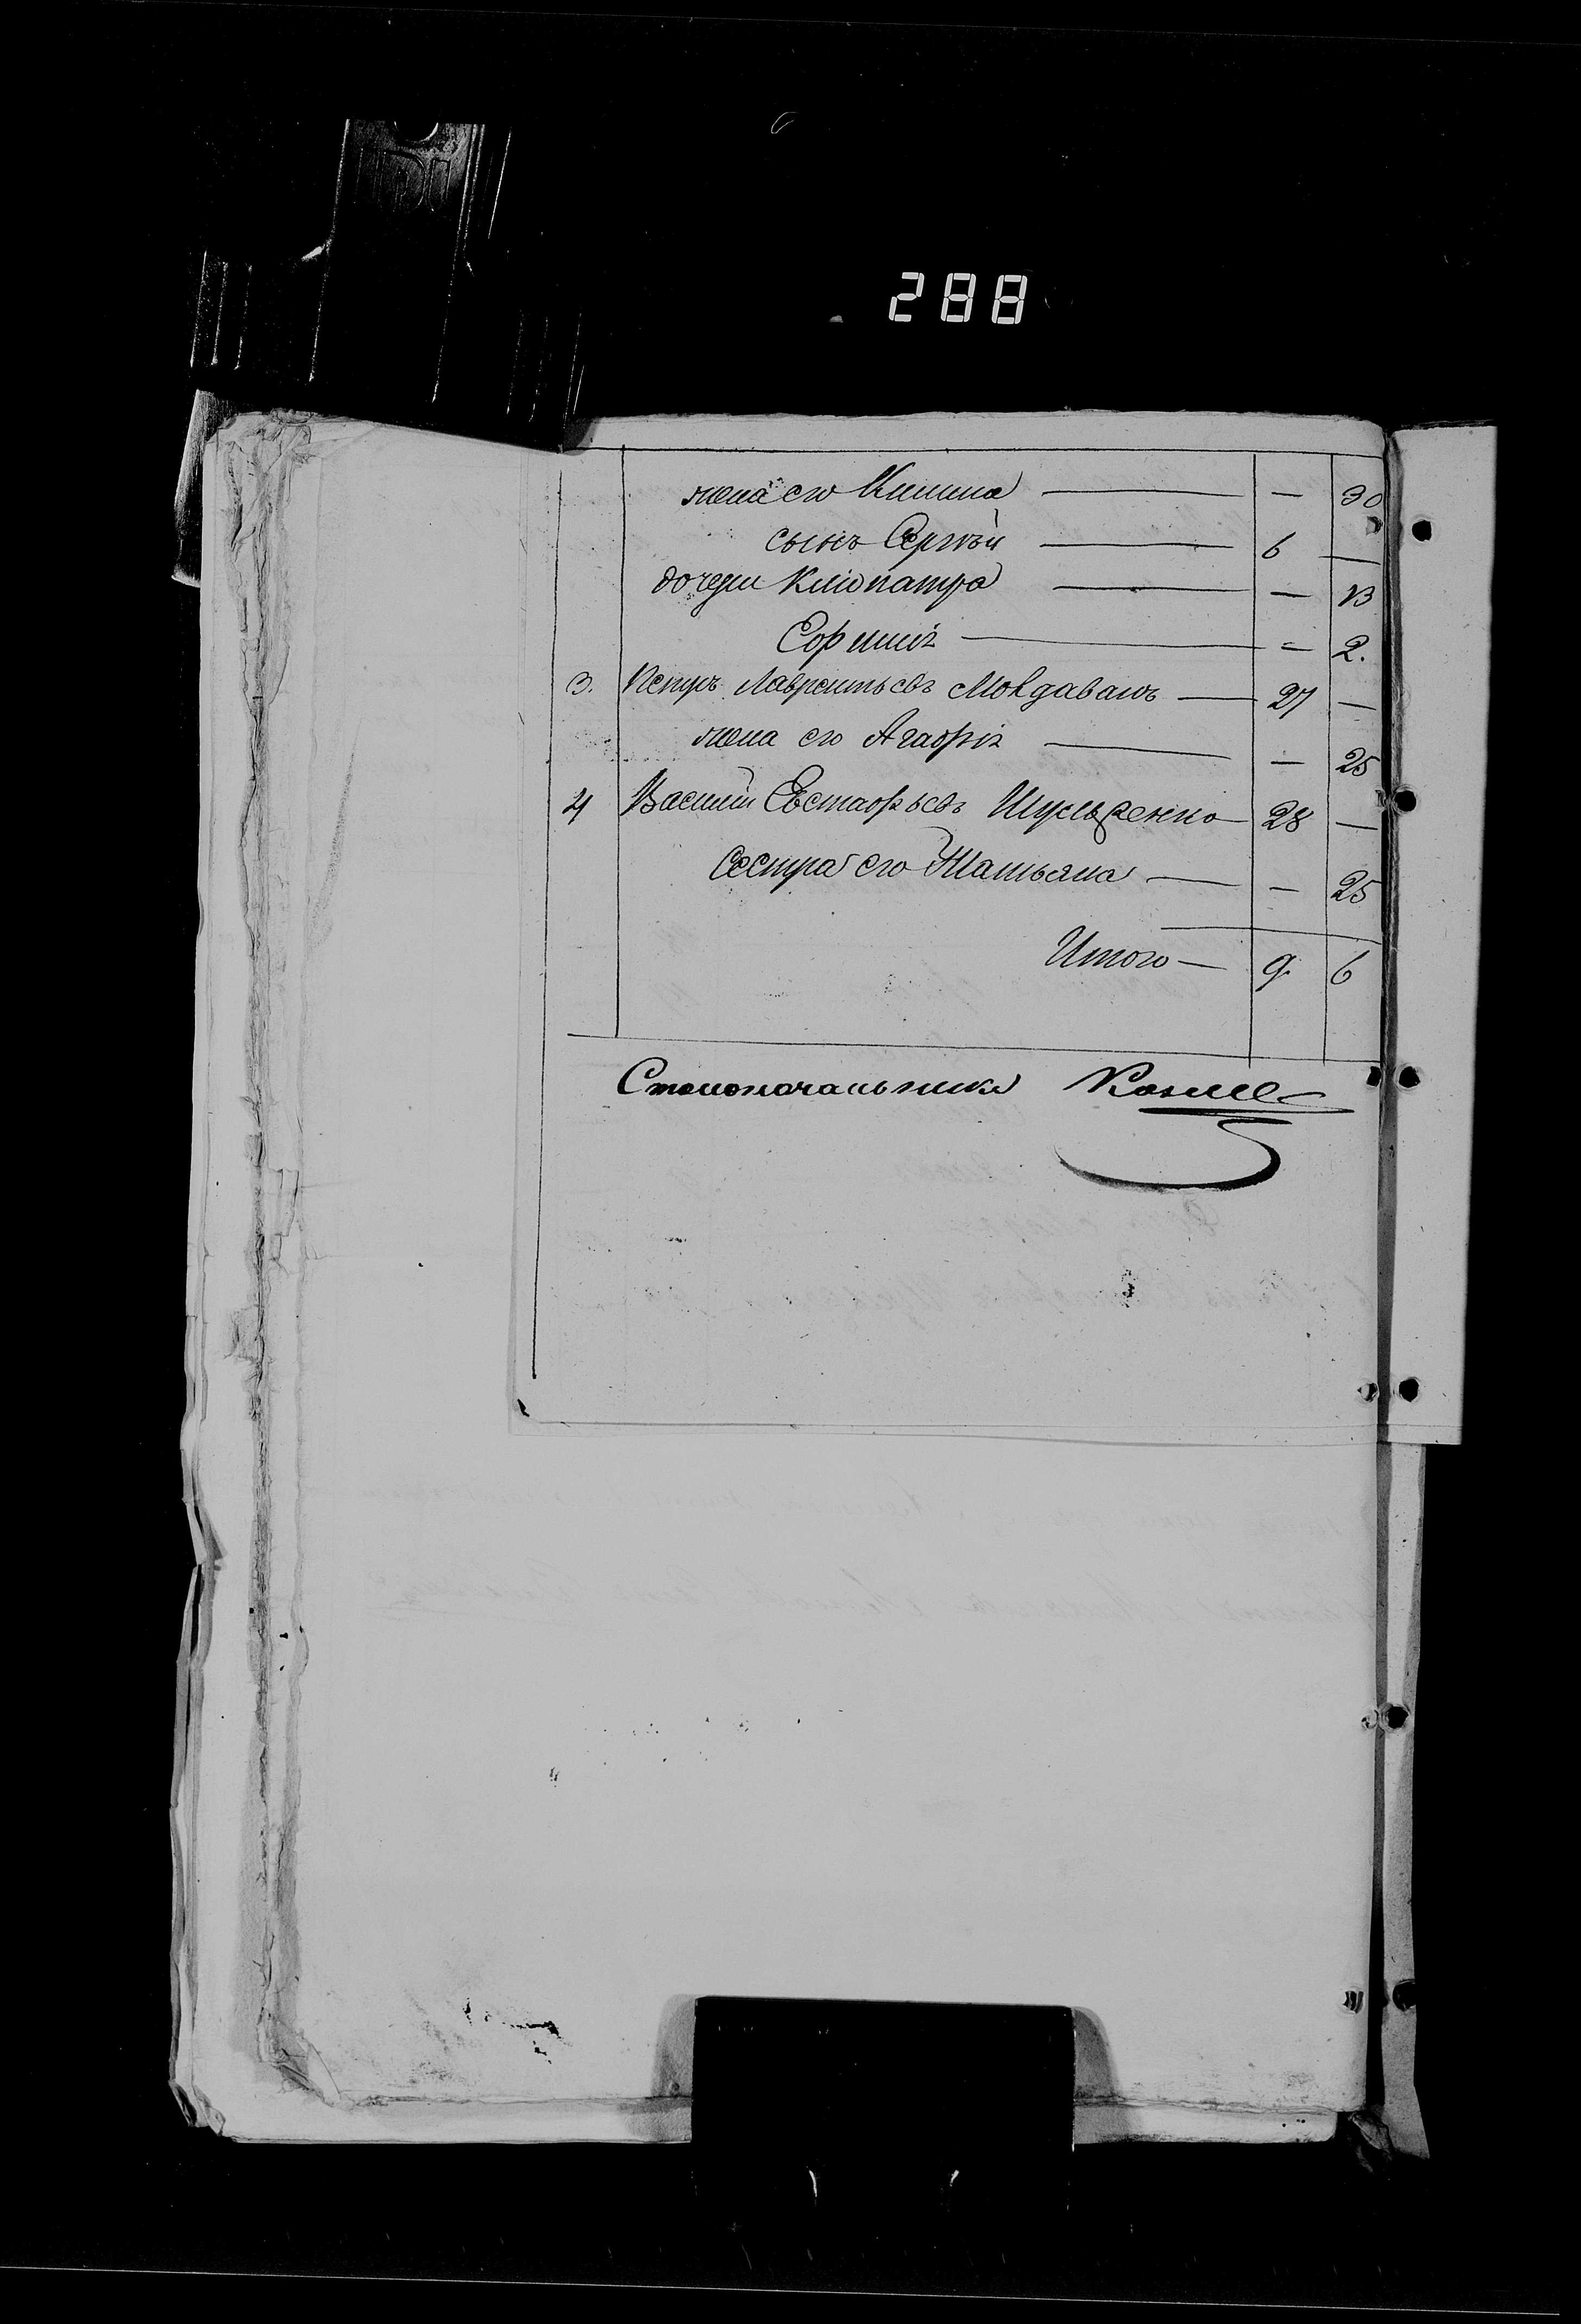 288
жена его Килина — — 30
сынъ Сергѣй — 6 —
дочери Клiопатра — — 13
Софiя — — 2.
3. Петръ Лаврентьевъ Молдаванъ — 27 —
жена его Агафiя — — 25
4 Василiй Евстафьевъ — 28 —
сестра его Татьяна — — 25
Итого — 9 6
Столоначальника